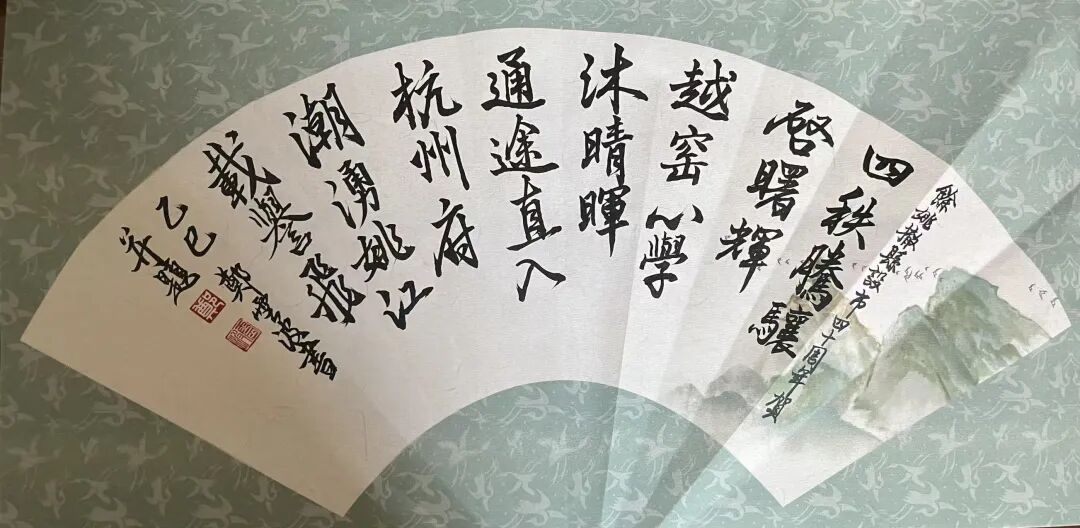 餘姚撤縣設市四十周年賀
四秩騰驤
啓曙輝
越窑心學
沐晴暉
通途直入
杭州府
潮湧姚江
載譽飛
乙巳鄭波書
并題